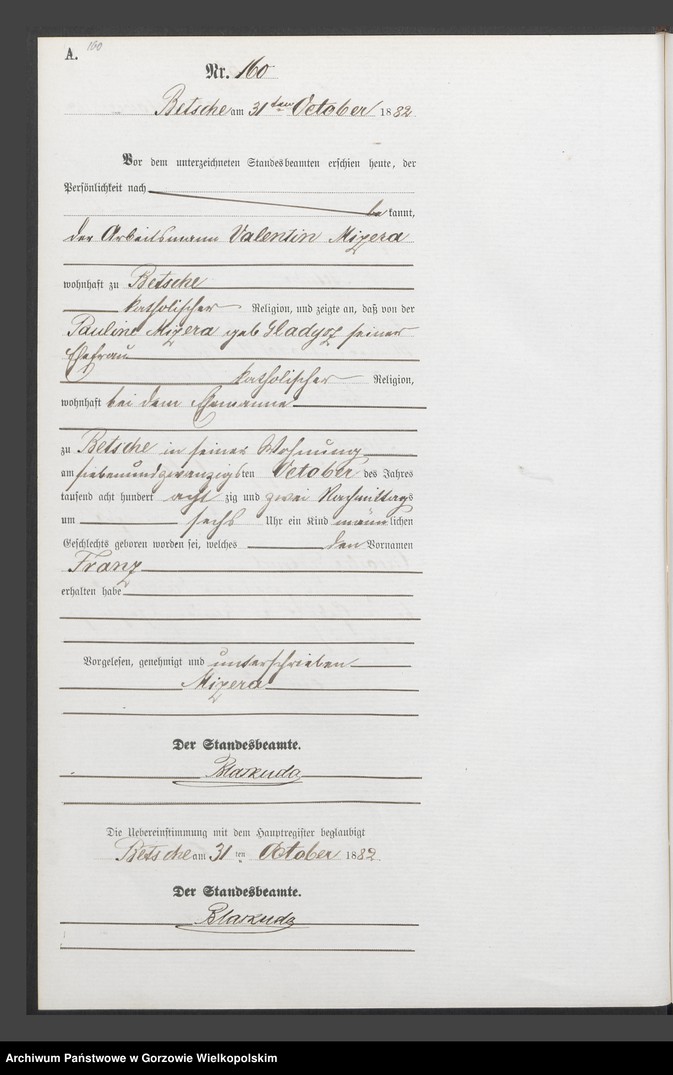 A. 160
Nr. 160
Betsche am 31ten October 1882
Vor dem unterzeichneten Standesbeamten erschien heute, der
Persönlichkeit nach
be kannt,
der Arbeitsmann Valentin Mizera
wohnhaft zu Betsche
katholischer Religion, und zeigte an, daß von der
Pauline Mizera geb Gladysz seiner
Ehefrau
katholischer Religion,
wohnhaft bei dem Ehemanne
zu Betsche in seiner Wohnung
am siebenundzwanzigsten October des Jahres
tausend acht hundert acht zig und zwei Nachmittags
um sechs Uhr ein Kind männlichen
Geschlechts geboren worden sei, welches den Vornamen
Franz
erhalten habe
Vorgelesen, genehmigt und unterschrieben
Mizera
Der Standesbeamte.
Blaskuda
Die Uebereinstimmung mit dem Hauptregister beglaubigt
Betsche am 31 ten October 1882.
Der Standesbeamte.
Blaskuda
Archiwum Państwowe w Gorzowie Wielkopolskim